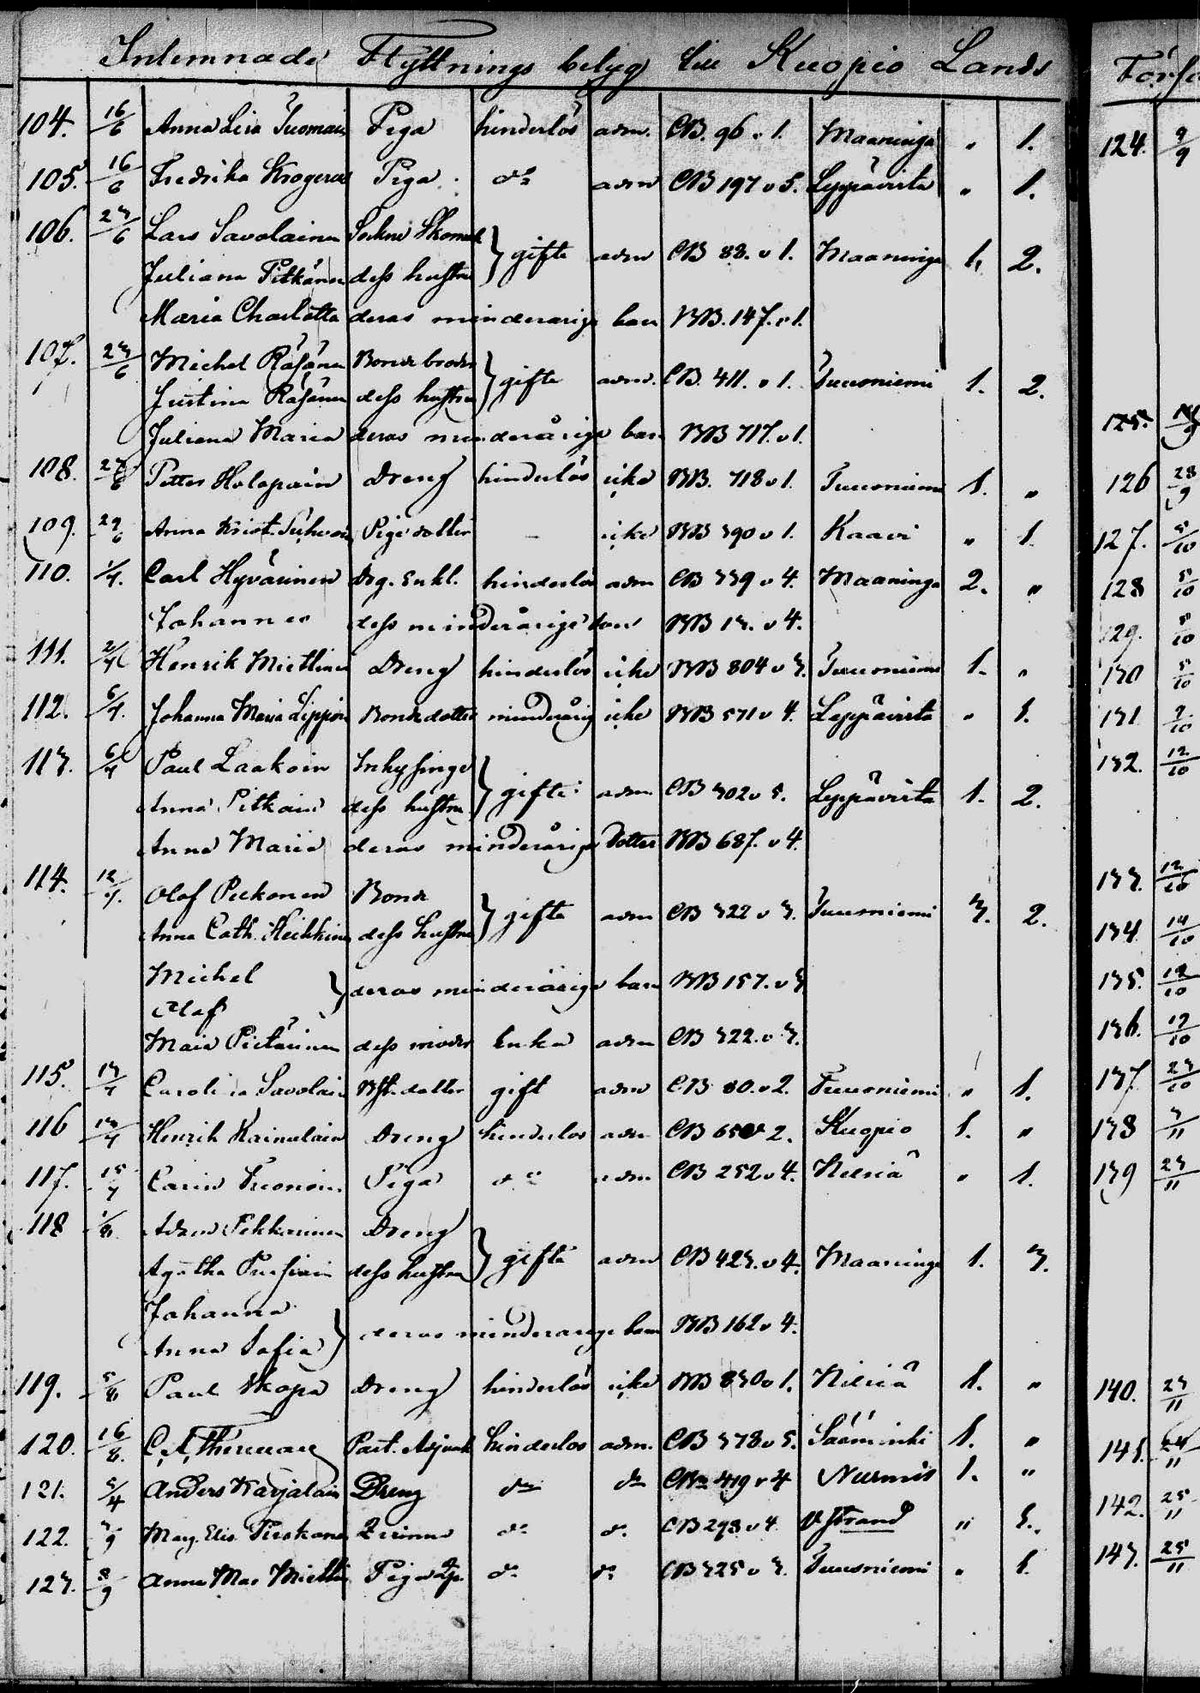 Inlemnade Flyttnings betyg till Kuopio Lands
104. 16/6 Anna Lisa Tuomain Piga hinderlös adm. CB. 96 v. 1. Maaninga " 1.
105. 16/6 Fredrika Krogerus Piga do adm CB 197 v 5. Leppävirta " 1.
106. 23/6 Lars Savolainen Sockne Skomak
Juliana Pitkänen dess hustru } gifte adm CB 88. v 1. Maaninga 1. 2.
Maria Charlotta deras minderåriga barn BB. 147. v 1.
107. 23/6 Michel Räsänen Bonde broder
Justina Räsänen dess hustru } gifte adm. CB. 411. v 1. Tuusniemi 1. 2.
Juliana Maria deras minderåriga barn BB 717. v 1.
108. Petter Holopain Dreng hinderlös icke BB. 718 v 1. Tuusniemi 1. "
109. Anna Krist. Pige dotter - icke BB 390 v 1. Kaavi " 1.
110. 1/7. Carl Hyvärinen Drg. Enkl. hinderlös adm CB 339 v 4. Maaninga 2. "
Johannes dess minderårige son BB 13. v 4.
111. 2/7 Henrik Miettinen Dreng hinderlös icke BB 804 v 3. Tuusniemi 1. "
112. 6/7. Johanna Maria Bonde dotter minderårig icke BB 571 v 4. Leppävirta " 1.
113. 6/7 Paul Laakoin Inhysinge
Anna Pitkäin dess hustru } gifte adm CB 302 v 5. Leppävirta 1. 2.
Anna Maria deras minderåriga dotter BB 687. v 4.
114. 12/7. Olof Pekonen Bonde
Anna Cath. Heikkinen dess hustru } gifte adm CB 322 v 3. Tuusniemi 3. 2.
Michel
Olof } deras minderåriga barn BB 157. v 3
Maria Pietarinen dess moder Enka adm CB 322. v 3.
115. 13/7 Carolina Savolain dotter gift adm CB 80. v 2. Tuusniemi " 1.
116 13/7 Henrik Kainulain Dreng hinderlös adm CB 65 v 2. Kuopio 1. "
117. 15/7 Carin Piga do adm CB 252 v 4. Nilsiä " 1.
118 1/8. Adam Pekkarinen Dreng
Agatha Pursiain dess hustru } gifte adm CB 423. v 4. Maaninga 1. 3.
Johanna
Anna Sofia } deras minderåriga barn BB 162 v 4.
119. 5/8 Paul Skopa Dreng hinderlös icke BB 830 v 1. Nilsiä 1. "
120. 16/8. C. A. Past. Adjunkt hinderlös adm. CB 378 v 5. Sääminki 1. "
121. 5/4 Anders Karjalain Dreng do do 419 v 4 Nurmis 1. "
122. Marg. Elis. Pirskanen Qvinna do do CB 293 v 4. " 1.
123. 8/9 Anna Mar. Miettin Piga do do CB 325 v 3. Tuusniemi " 1.
124. 9/9
125.
126 28/9
127. 5/10
128 5/10
129. 5/10
130 5/10
131 7/10
132. 12/10
133. 12/10
134 14/10
135. 19/10
136. 19/10
137. 23/10
138 3/11
139 23/11
140. 23/11
141.
142. 25/11
143. 25/11